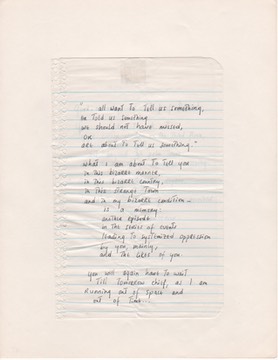 "... all want to tell us something,
or told us something
we should not have missed,
or
are about to tell us something."
what i am about to tell you
in this bizarre manner,
in this bizarre country,
in this strange town
and in my bizarre condition –
is a mimicry:
another episode
in the series of events
leading to systemized oppression
by you, mainly,
and the likes of you.
you will again have to wait
till tomorrow chief, as i am
running out of space and
out of time.